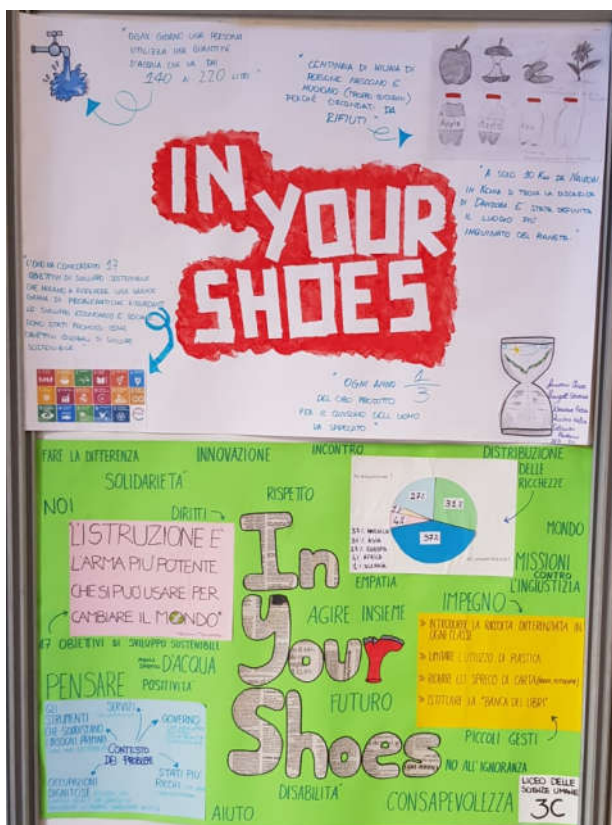 "OGNI GIORNO UNA PERSONA
UTILIZZA UNA QUANTITÀ
D'ACQUA CHE VA DAI
140 AI 220 LITRI"
"CENTINAIA DI MILIAIA DI
PERSONE NASCONO E
MUOIONO (TROPPO GIOVANI)
PERCHÉ CIRCONDATI DA
RIFIUTI"
Apple
"A SOLO 30 KM DA NAIROBI
IN KENIA SI TROVA LA DISCARICA
DI DANDORA È STATA DEFINITA
IL LUOGO PIÙ
INQUINATO DEL PIANETA"
IN
YOUR
SHOES
L'ONU HA CONCORDATO 17
OBIETTIVI DI SVILUPPO SOSTENIBILE
CHE MIRANO A RISOLVERE UNA GRANDE
GAMMA DI PROBLEMATICHE RIGUARDANTI
LO SVILUPPO ECONOMICO E SOCIALE
SONO STATI PROMOSSI COME
OBIETTIVI GLOBALI DI SVILUPPO
SOSTENIBILE"
"OGNI ANNO 1/3
DEL CIBO PRODOTTO
PER IL CONSUMO DELL'UOMO
VA SPRECATO"
FARE LA DIFFERENZA
INNOVAZIONE
INCONTRO
DISTRIBUZIONE
DELLE
RICCHEZZE
SOLIDARIETA'
RISPETTO
NOI
DIRITTI
27%
31%
37%
37% AMERICA
31% ASIA
27% EUROPA
MONDO
"L'ISTRUZIONE È
L'ARMA PIU' POTENTE
CHE SI PUO' USARE PER
CAMBIARE IL MONDO"
In
Your
Shoes
EMPATIA
MISSIONI
CONTRO
L'INGIUSTIZIA
AGIRE INSIEME
IMPEGNO
INTRODURRE LA RACCOLTA DIFFERENZIATA IN
OGNI CLASSE
LIMITARE L'UTILIZZO DI PLASTICA
RIDURRE LO SPRECO DI CARTA
ISTITUIRE LA "BANCA DEI LIBRI"
17 OBIETTIVI DI SVILUPPO SOSTENIBILE
D'ACQUA
PENSARE
POSITIVITA'
FUTURO
GLI
STRUMENTI
CHE SODDISFANO
I BISOGNI PRIMARI
SERVIZI
GOVERNO
CONTESTO
DEI PROBLEMI
STATI PIU'
RICCHI
OCCUPAZIONI
DIGNITOSE
PICCOLI GESTI
NO ALL'IGNORANZA
DISABILITÀ
AIUTO
CONSAPEVOLEZZA
LICEO DELLE
SCIENZE UMANE
3C